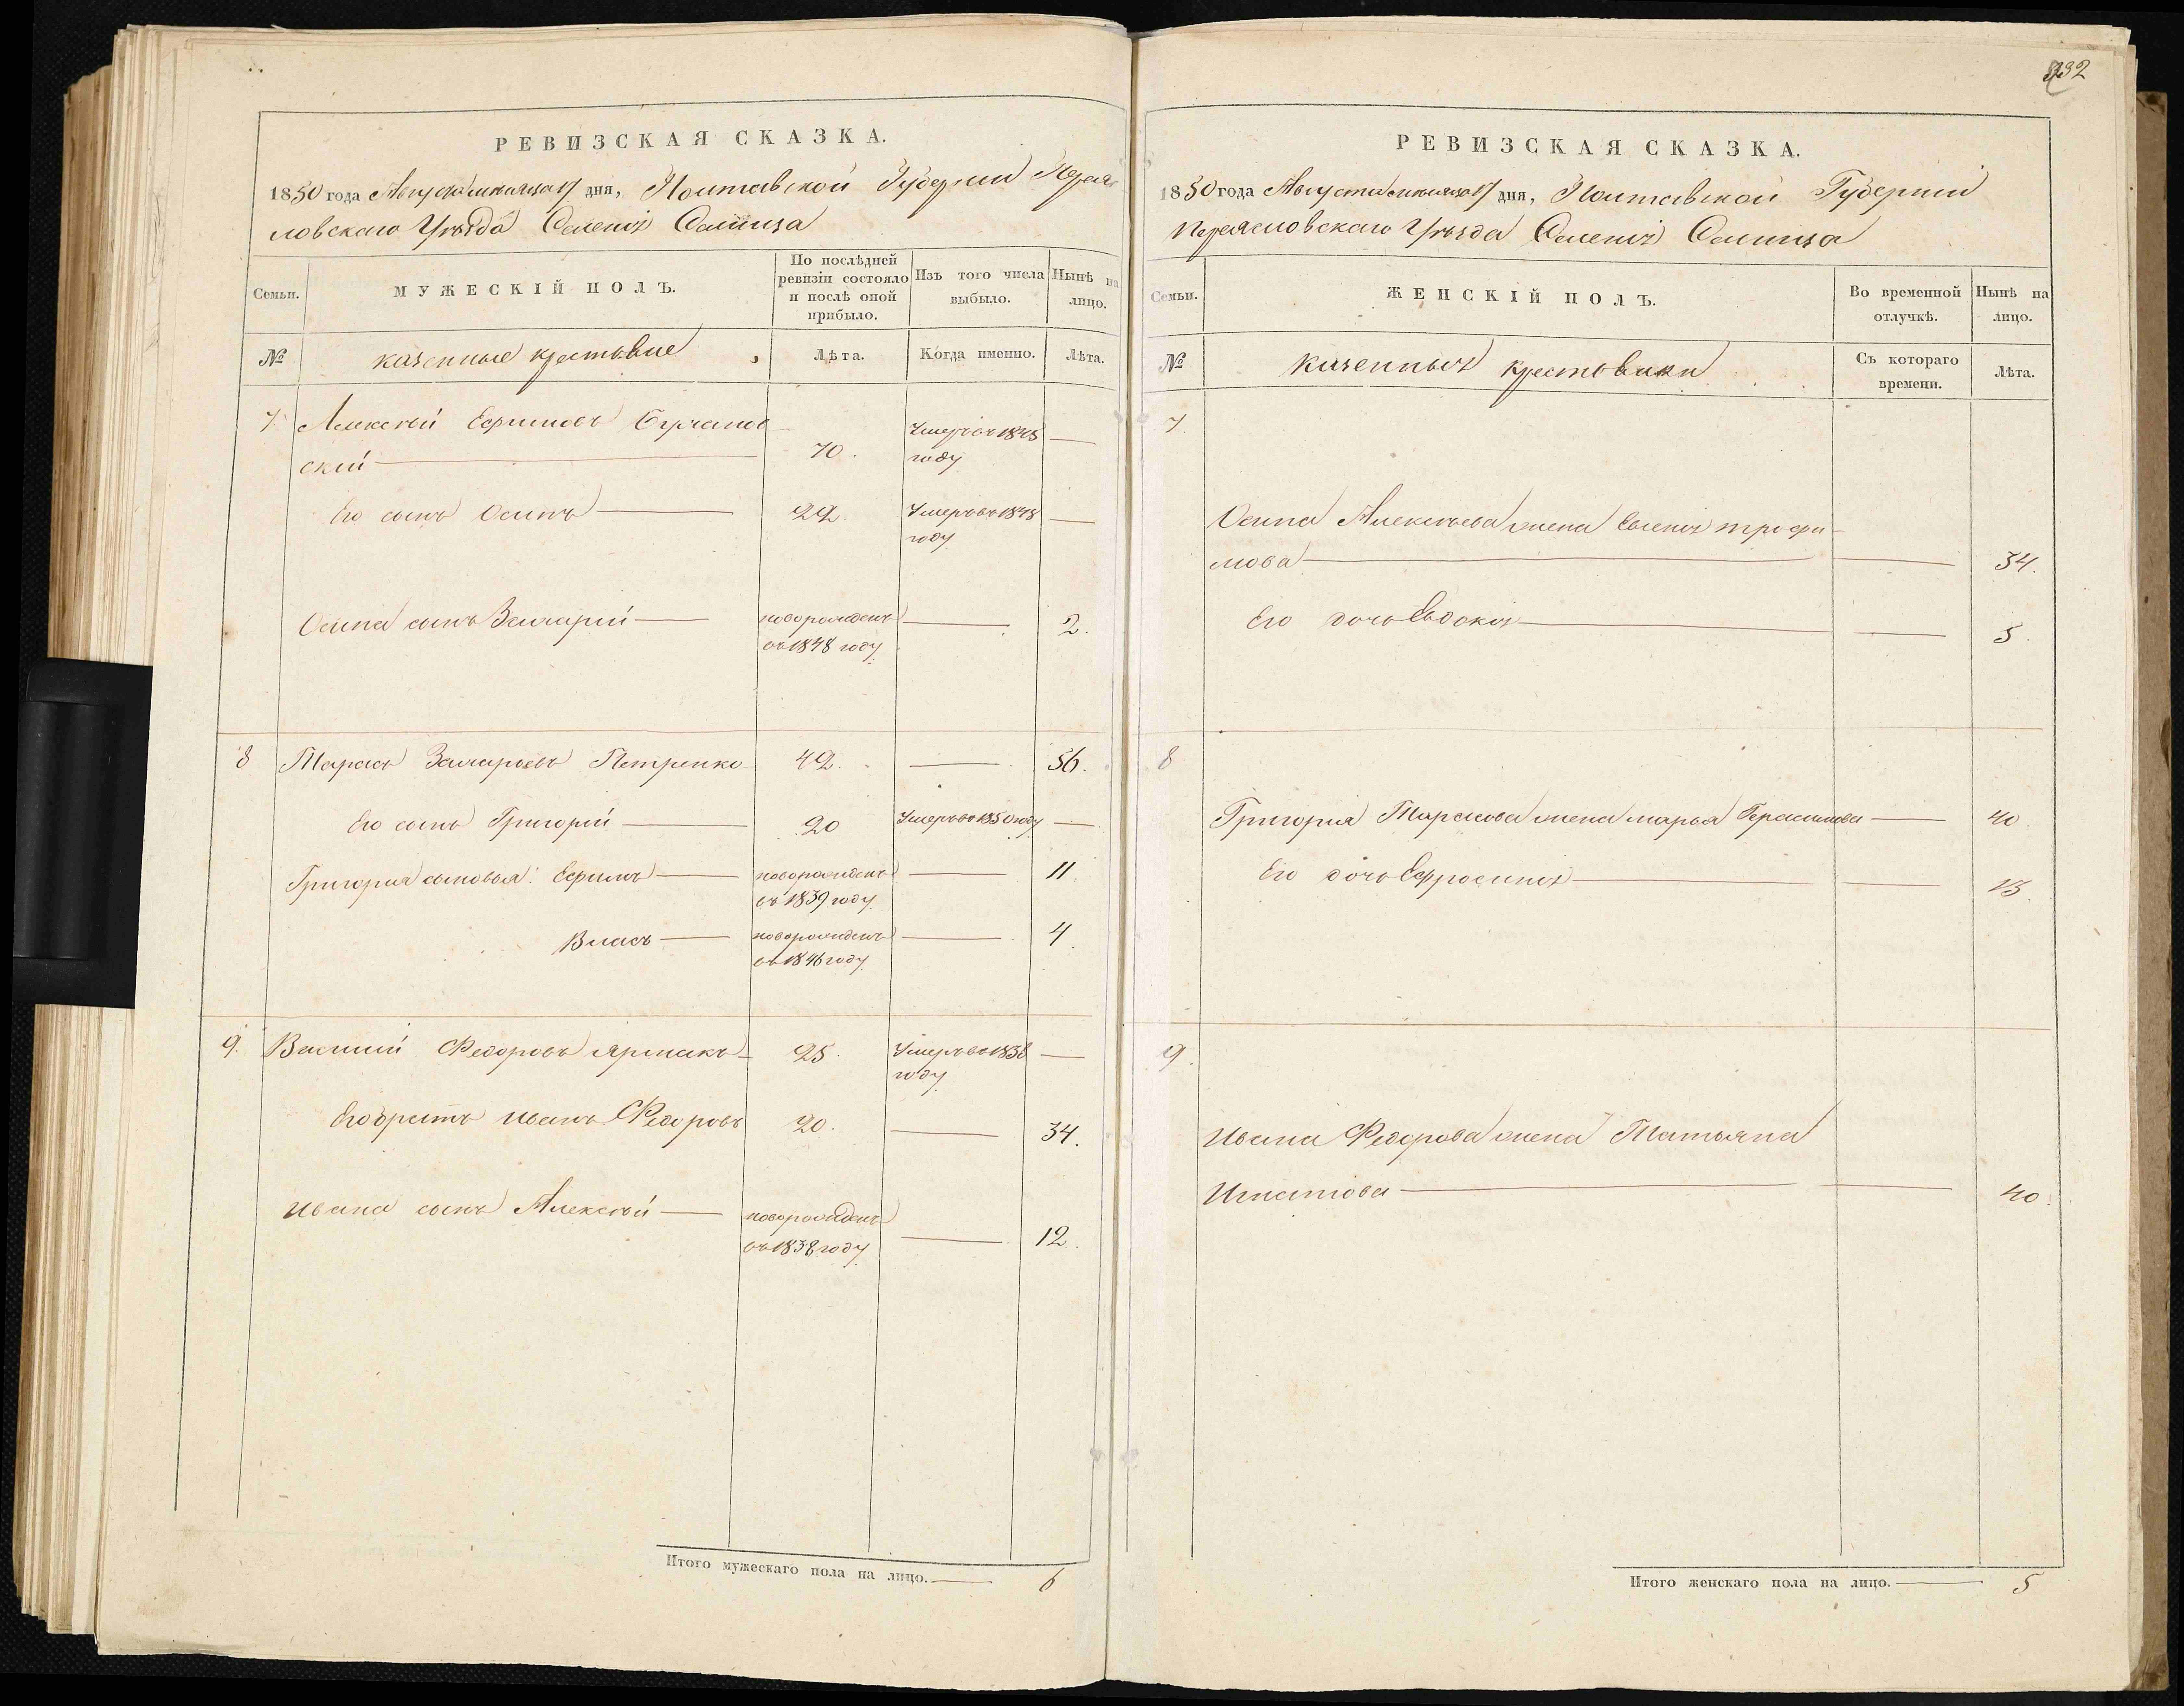 232
РЕВИЗСКАЯ СКАЗКА.
1850 года Августа месяца 17 дня, Полтавской Губернии Перея
ловскаго Уѣзда Селенія Сошица
Семьи.
МУЖЕСКІЙ ПОЛЪ.
По послѣдней ревизіи состояло и послѣ оной прибыло.
Изъ того числа выбыло.
Нынѣ на лицо.
№
казенные крестьяне
Лѣта.
Когда именно.
Лѣта.
7. Алексѣй Ефимовъ
скій 70. Умеръ въ 1845 году
Его сынъ Осипъ 22 Умеръ въ 1848 году
Осипа сынъ Захарій новорожденъ въ 1848 году 2.
8 Тарасъ Захаровъ Петренко 42. 56.
Его сынъ Григорій 20 Умеръ въ 1850 году
Григорія сыновья: Ефимъ новорожденъ въ 1839 году 11.
Власъ новорожденъ въ 1846 году 4.
9. Василій Федоровъ Ярмакъ 25. Умеръ въ 1838 году
Его братъ Иванъ Федоровъ 20. 34.
Ивана сынъ Алексѣй новорожденъ въ 1838 году 12.
Итого мужескаго пола на лицо. 6
РЕВИЗСКАЯ СКАЗКА.
1850 года Августа месяца 17 дня, Полтавской Губерніи
Переясловскаго Уѣзда Селенія Сошица
Семьи.
ЖЕНСКІЙ ПОЛЪ.
Во временной отлучкѣ.
Нынѣ на лицо.
№
казенныя крестьянки
Съ котораго времени.
Лѣта.
7.
Осипа Алексѣева жена Евгенія Трофи
мова 34.
Его дочь Евдокія 5.
8
Григорія Тарасова жена Марья Герасимова 40
Его дочь Ефросинія 13.
9.
Ивана Федорова жена Татьяна
Игнатова 40.
Итого женскаго пола на лицо. 5